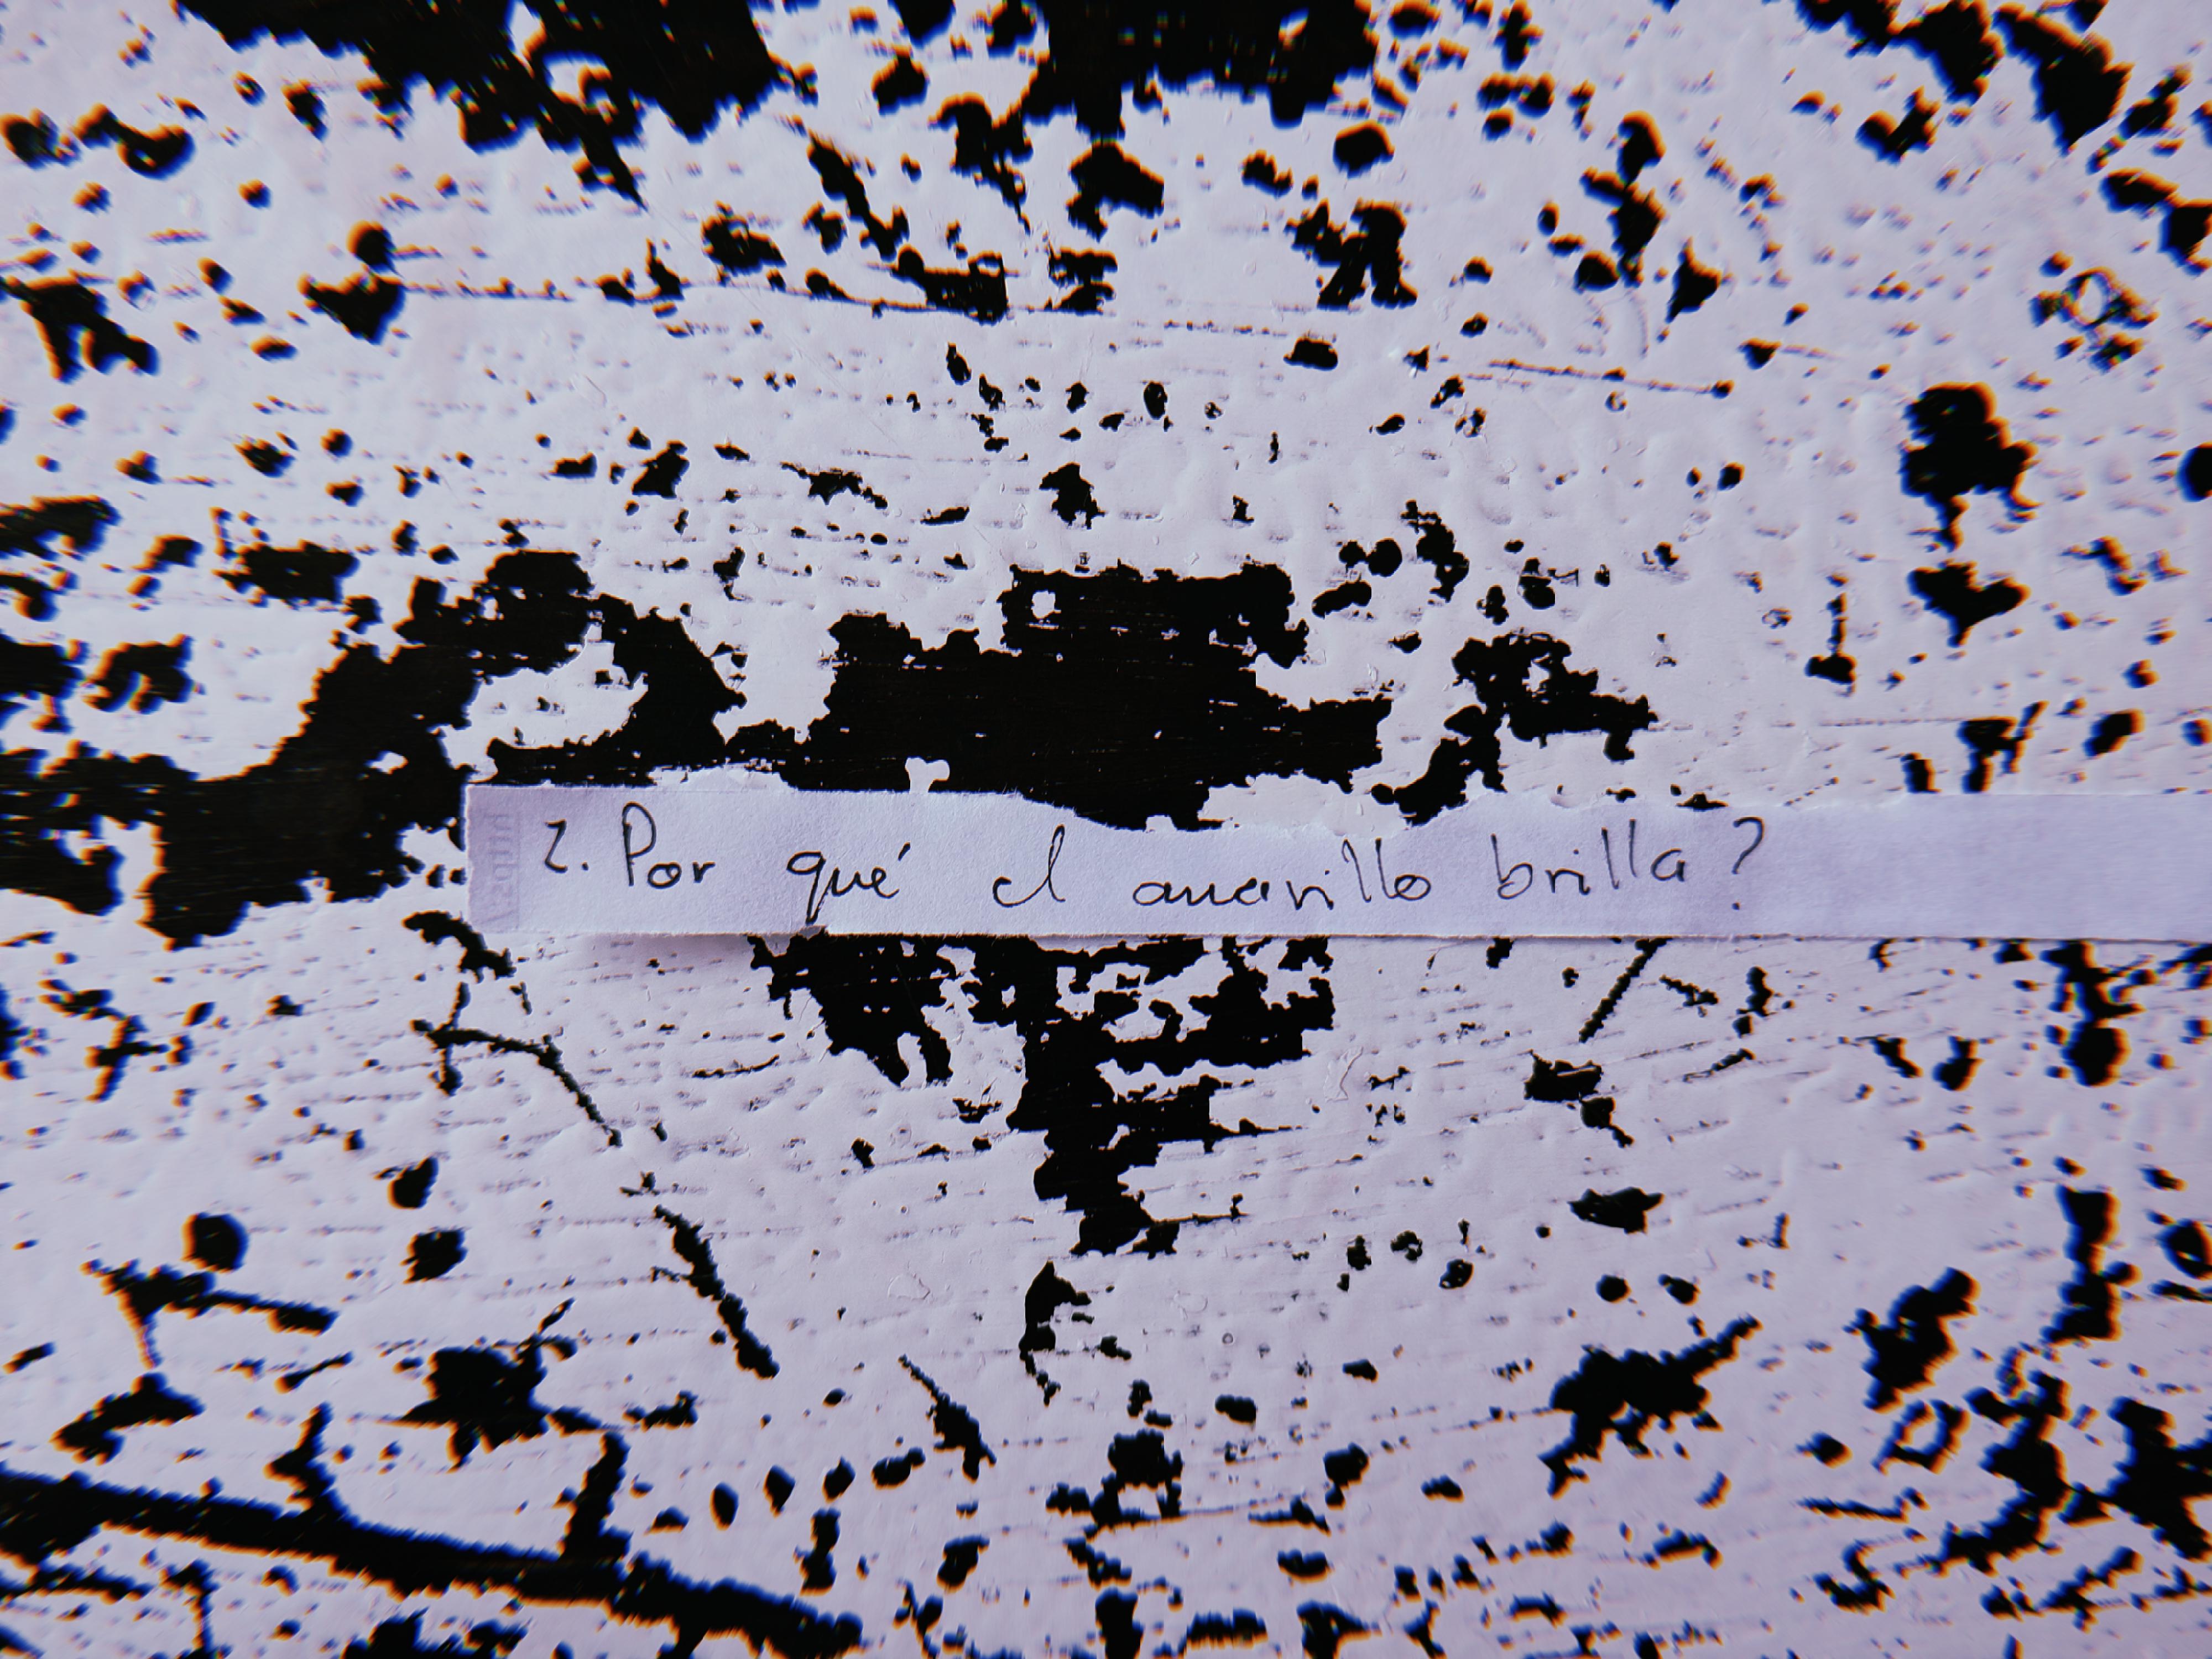 2. Por qué el amarillo brilla?